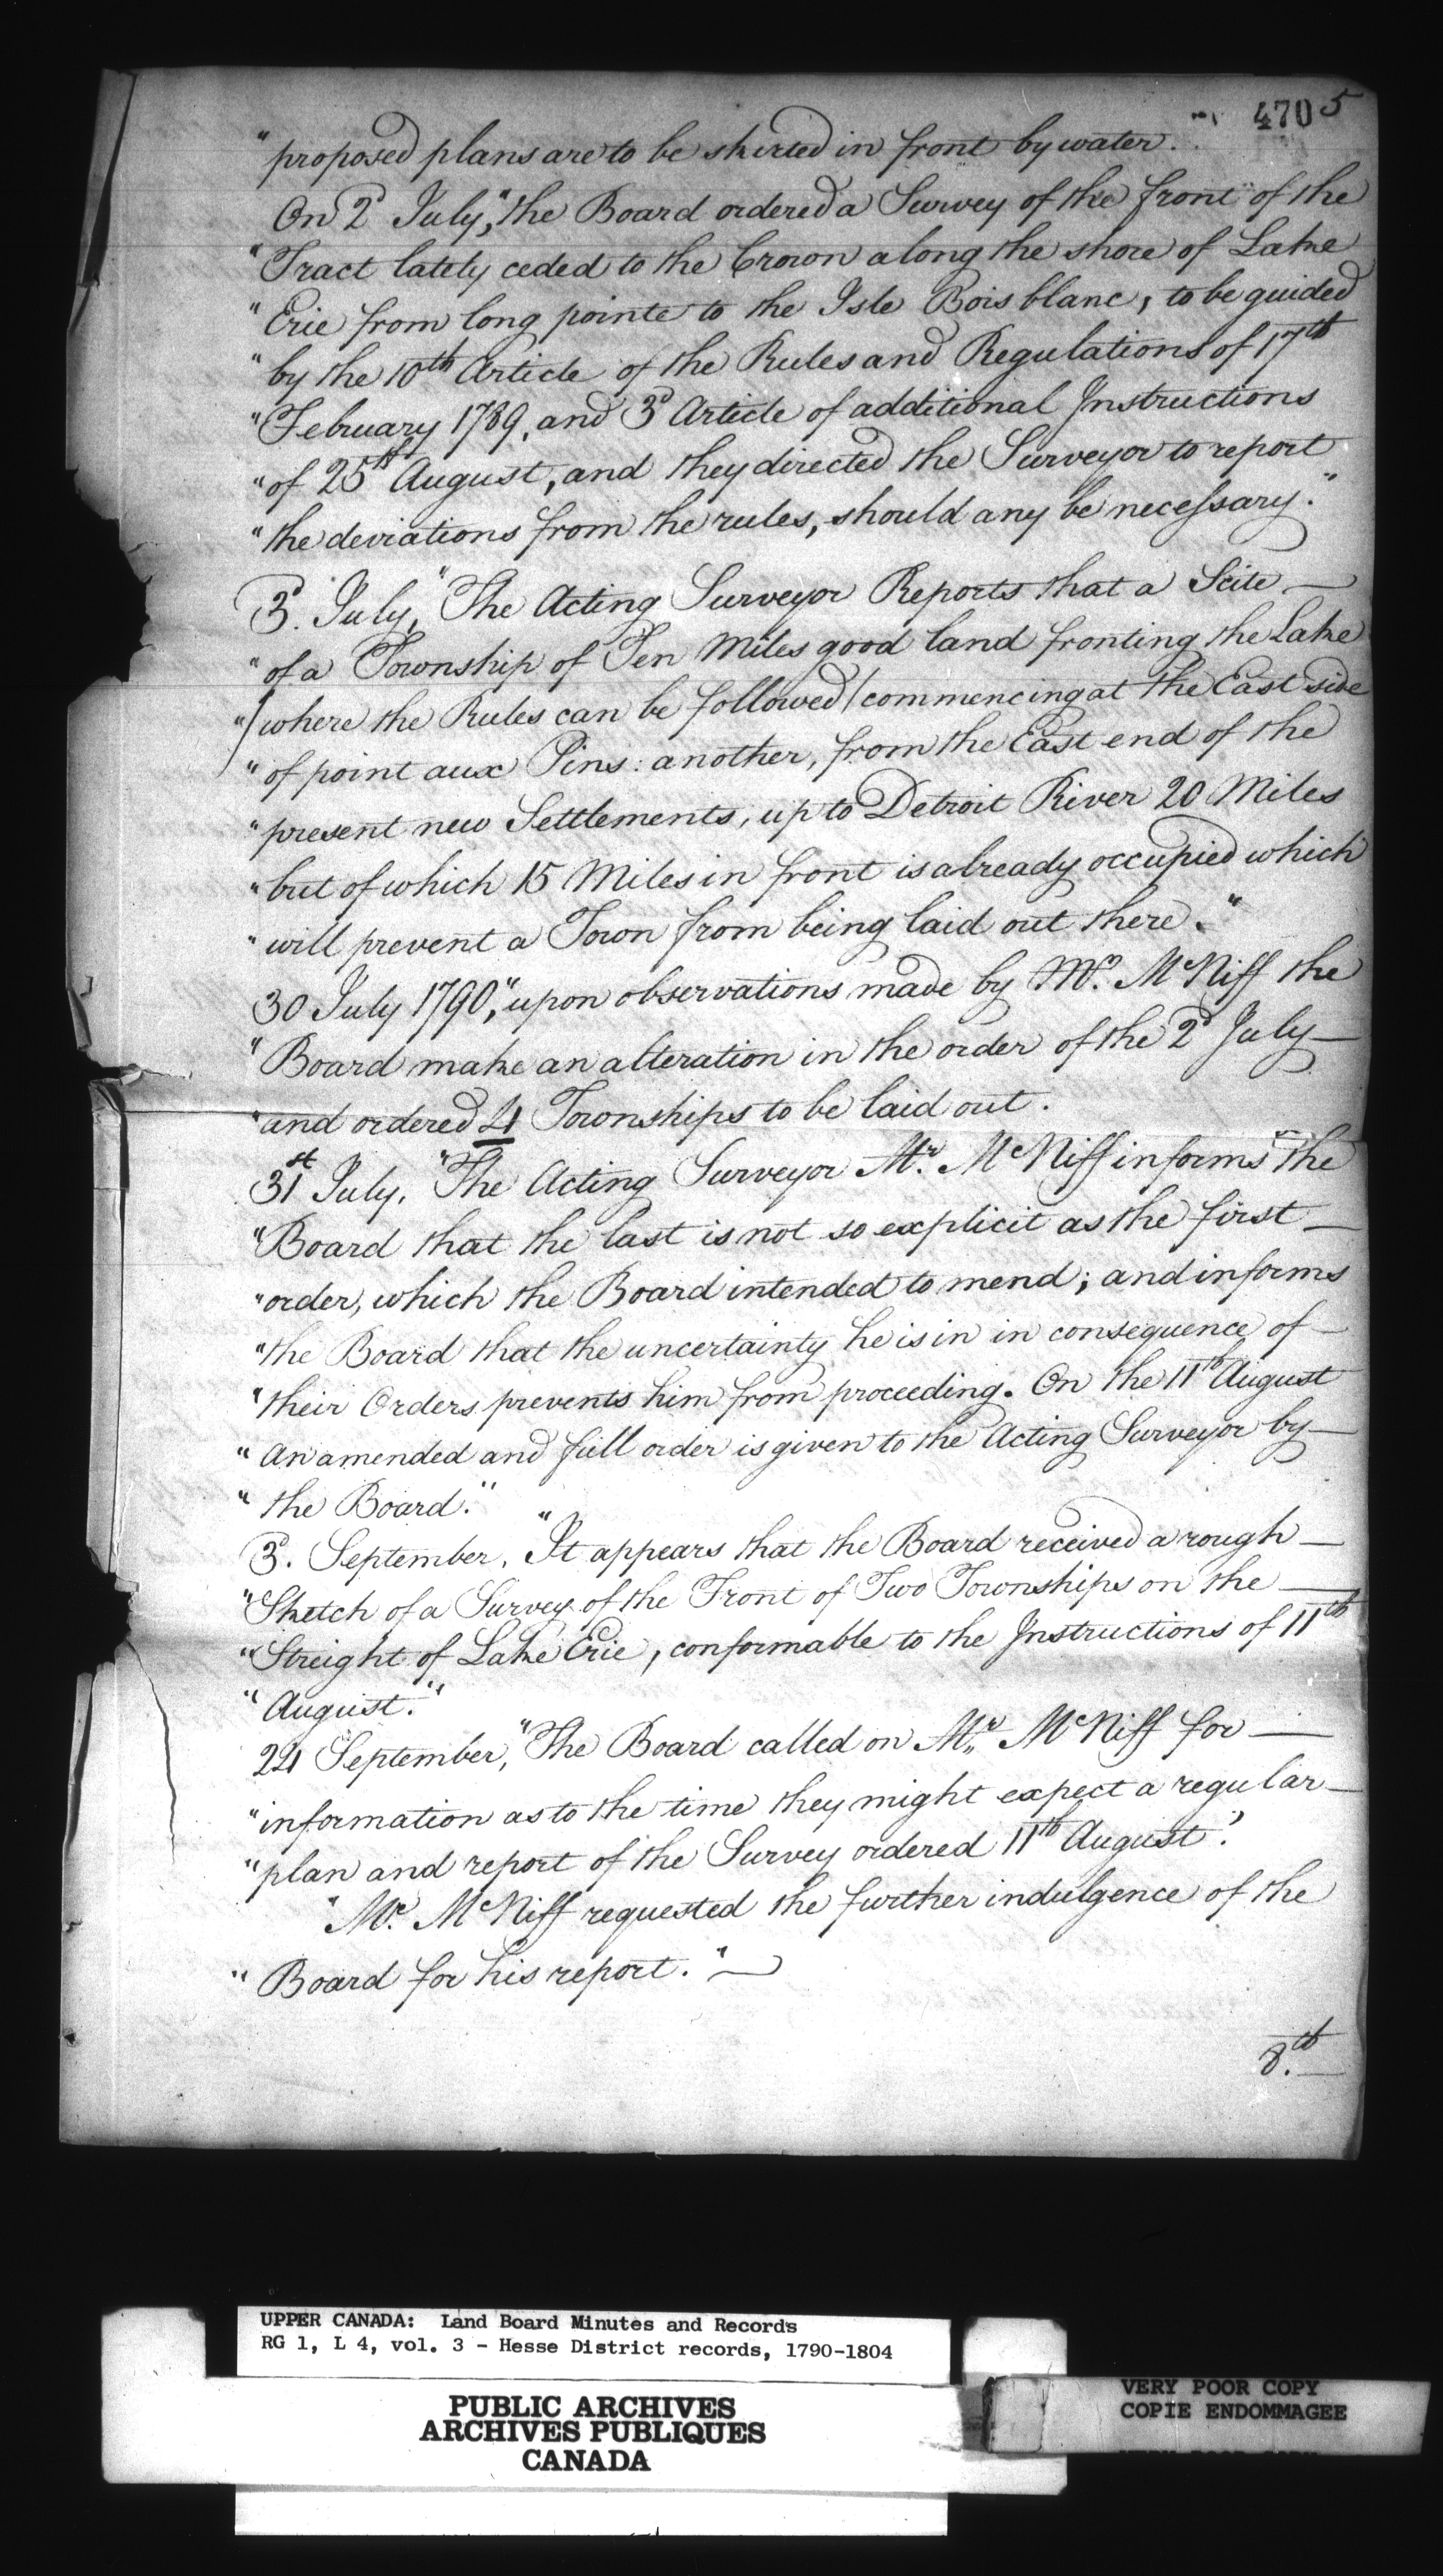 470 5
"proposed plans are to be skirted in front by water."
On 2d July, "the Board ordered a Survey of the front of the
"Tract lately ceded to the Crown along the shore of Lake
"Erie from long pointe to the Isle Bois blanc, to be guided
"by the 10th Article of the Rules and Regulations of 17th
"February 1789, and 3d Article of additional Instructions
"of 25th August, and they directed the Surveyor to report
"the deviations from the rules, should any be necessary."
3d. July, "The Acting Surveyor Reports that a Scite —
"of a Township of Ten Miles good land fronting the Lake
"/where the Rules can be followed/ commencing at the East side
"of point aux Pins: another, from the East end of the
"present new Settlements, up to Detroit River 20 Miles
"but of which 15 Miles in front is already occupied which
"will prevent a Town from being laid out there."
30 July 1790, "upon observations made by Mr. McNiff the
"Board make an alteration in the order of the 2d July —
"and ordered 4 Townships to be laid out.
31st July, "The Acting Surveyor Mr. McNiff informs the
"Board that the last is not so explicit as the first —
"order, which the Board intended to mend; and informs
"the Board that the uncertainty he is in in consequence of —
"their Orders prevents him from proceeding. On the 11th August
"an amended and full order is given to the Acting Surveyor by —
"the Board."
3d. September, "It appears that the Board received a rough —
"Sketch of a Survey of the Front of Two Townships on the —
"Streight of Lake Erie, conformable to the Instructions of 11th
"August."
24 September, "The Board called on Mr. McNiff for —
"information as to the time they might expect a regular —
"plan and report of the Survey ordered 11th August."
"Mr. McNiff requested the further indulgence of the
"Board for his report." —
8.th
UPPER CANADA: Land Board Minutes and Records
RG 1, L 4, vol. 3 - Hesse District records, 1790-1804
PUBLIC ARCHIVES
ARCHIVES PUBLIQUES
CANADA
VERY POOR COPY
COPIE ENDOMMAGEE